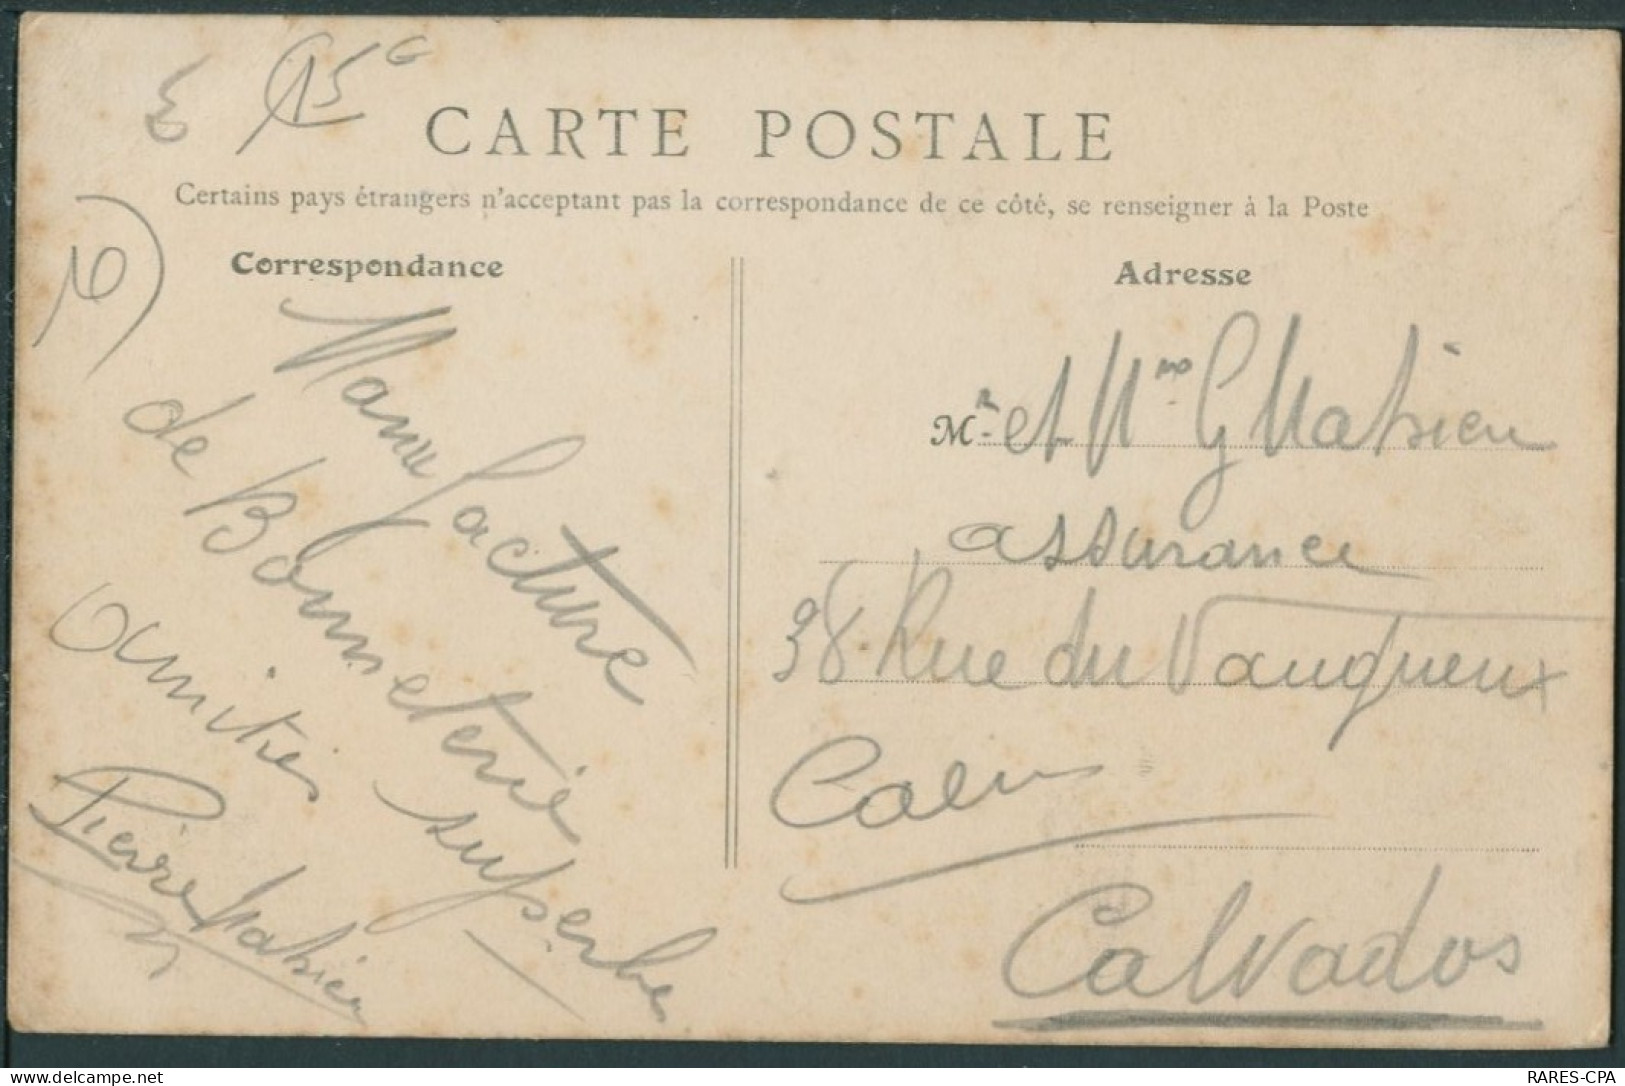 15
CARTE POSTALE
Certains pays étrangers n'acceptant pas la correspondance de ce côté, se renseigner à la Poste
Correspondance
Manufacture
de Bonneterie
superbe
amitiés
Pierre Mahieu
Adresse
Mr et Mme G Mahieu
assurance
38 Rue du Vaugueux
Caen
Calvados
delcampe.net
RARES-CPA